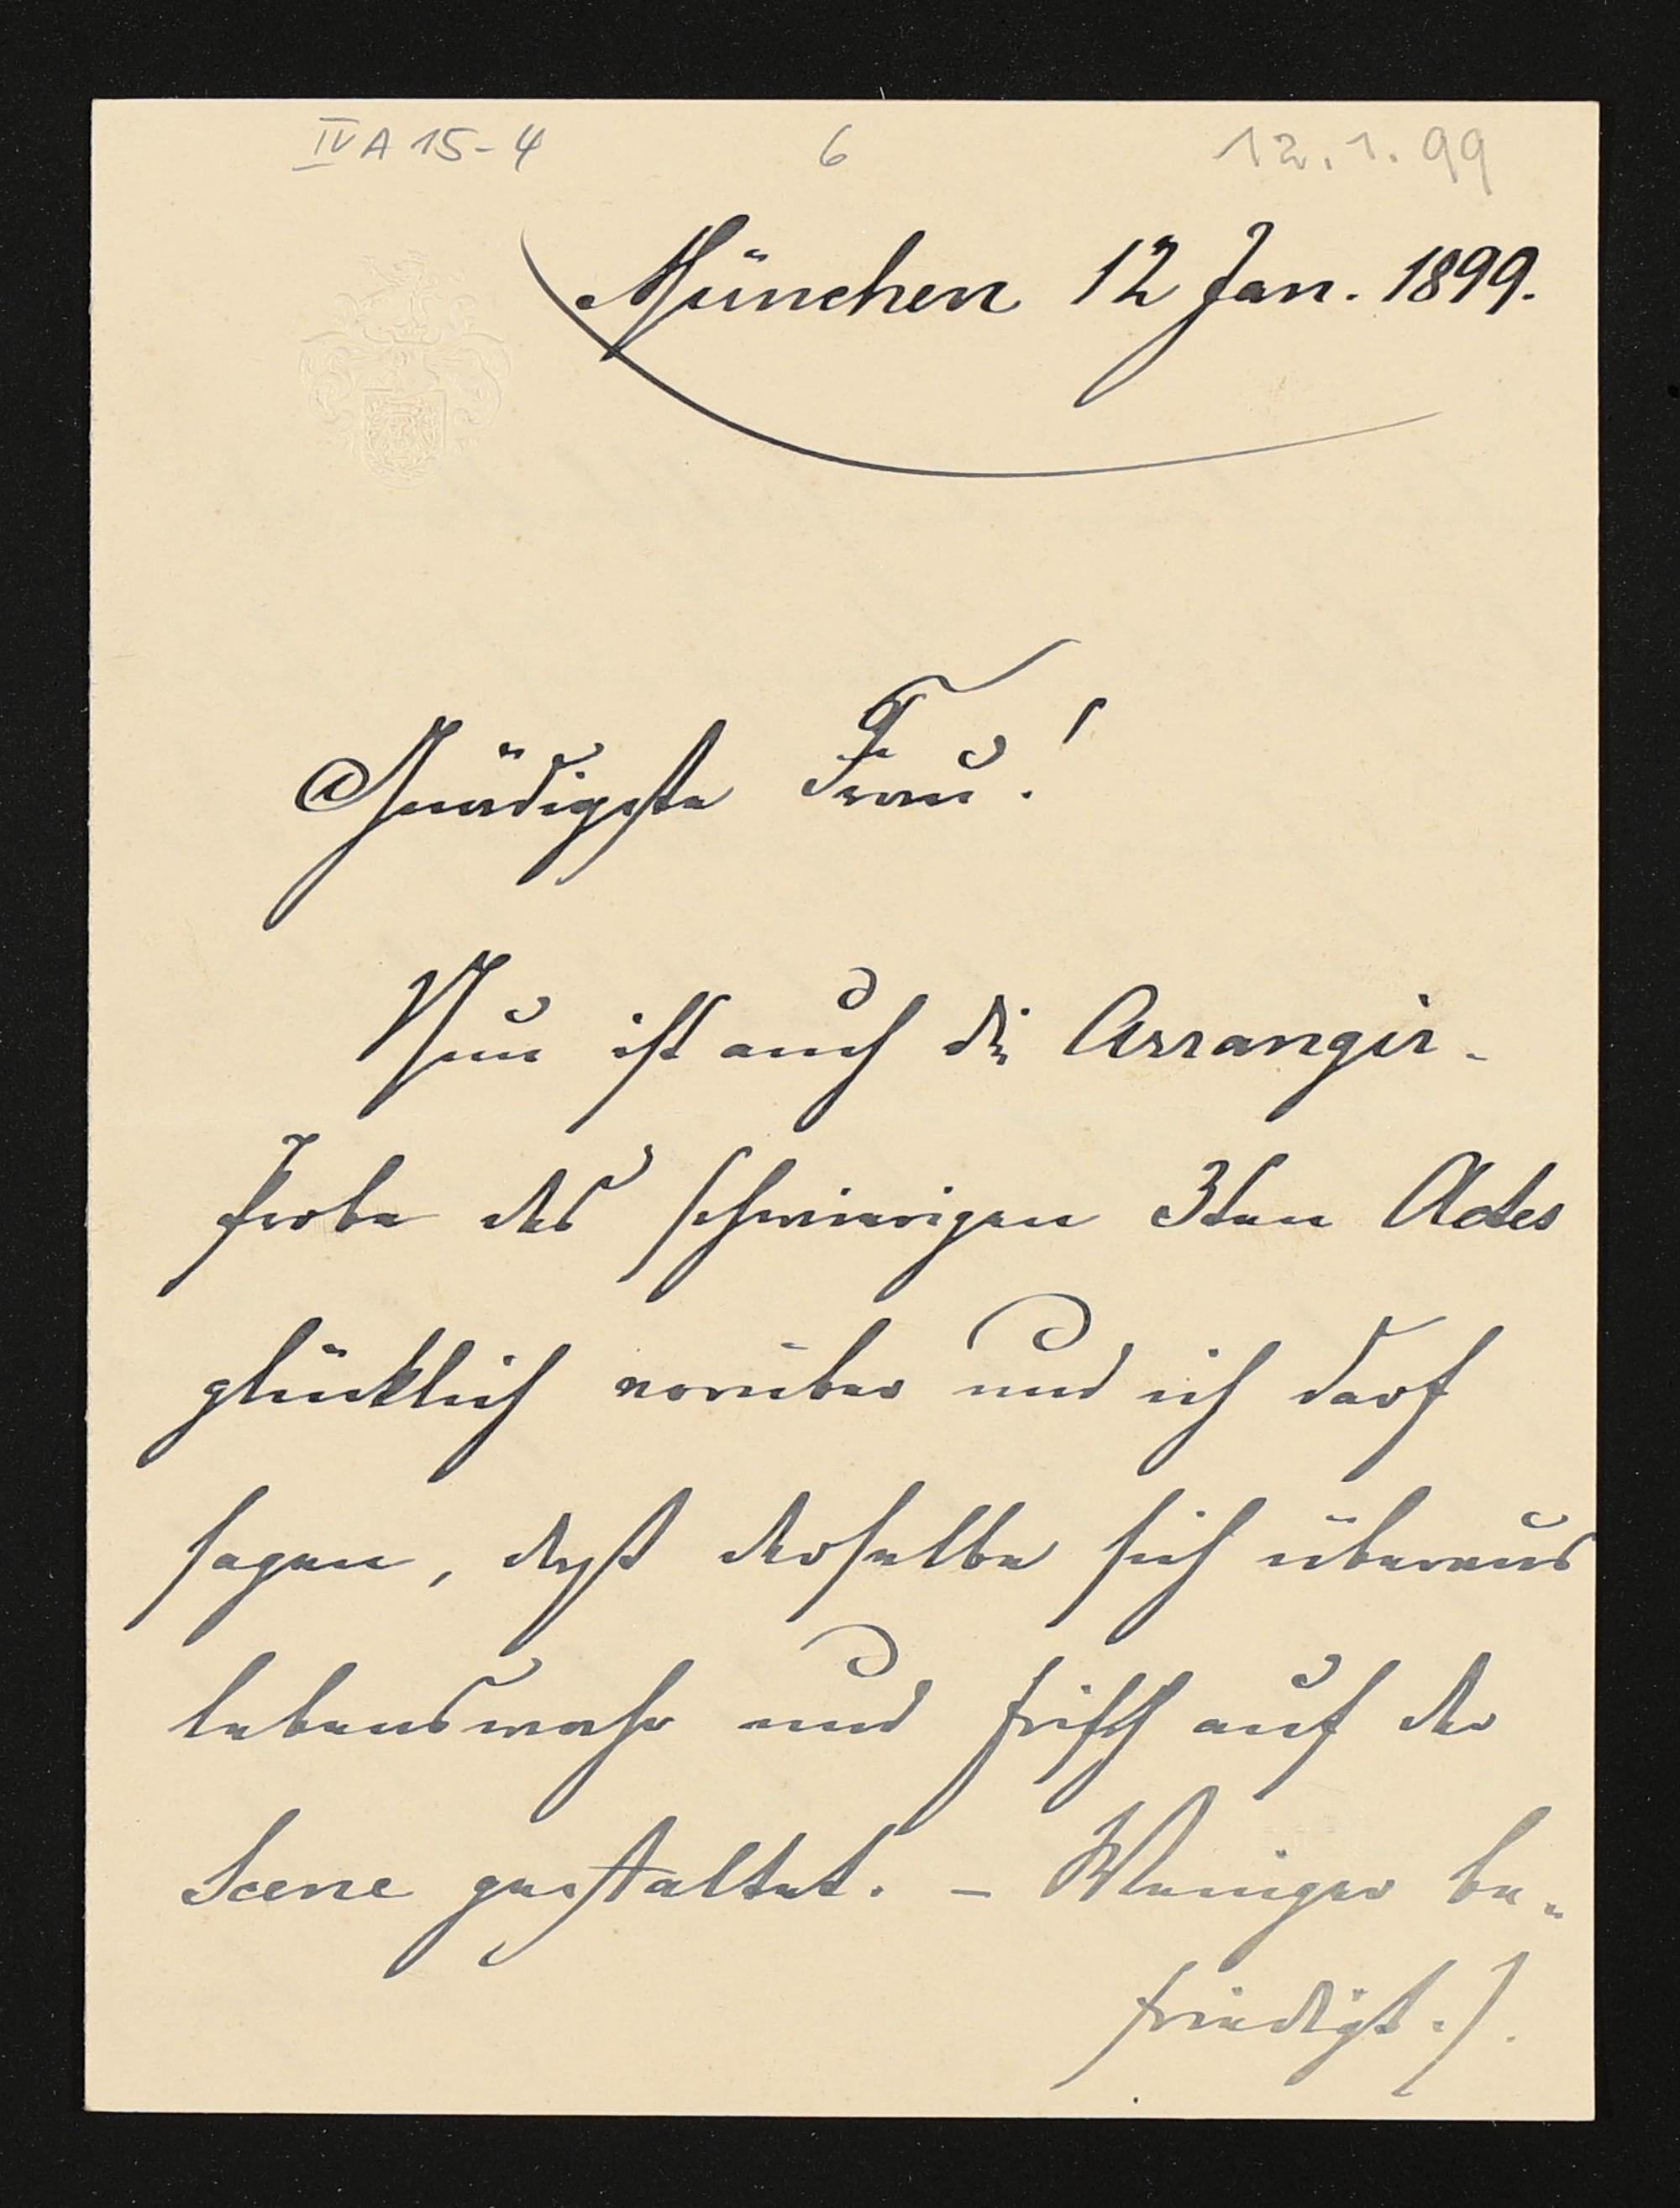 IV A 15-4 6 12.1.99
München 12 Jan. 1899.
Gnädigste Frau!
Nun ist auch die Arrangir-
probe des schwierigen 3ten Actes
glücklich vorüber und ich darf
sagen, daß derselbe sich überaus
lebenswahr und frisch auf der
Scene gestaltet. – Weniger be-
friedigt ./.